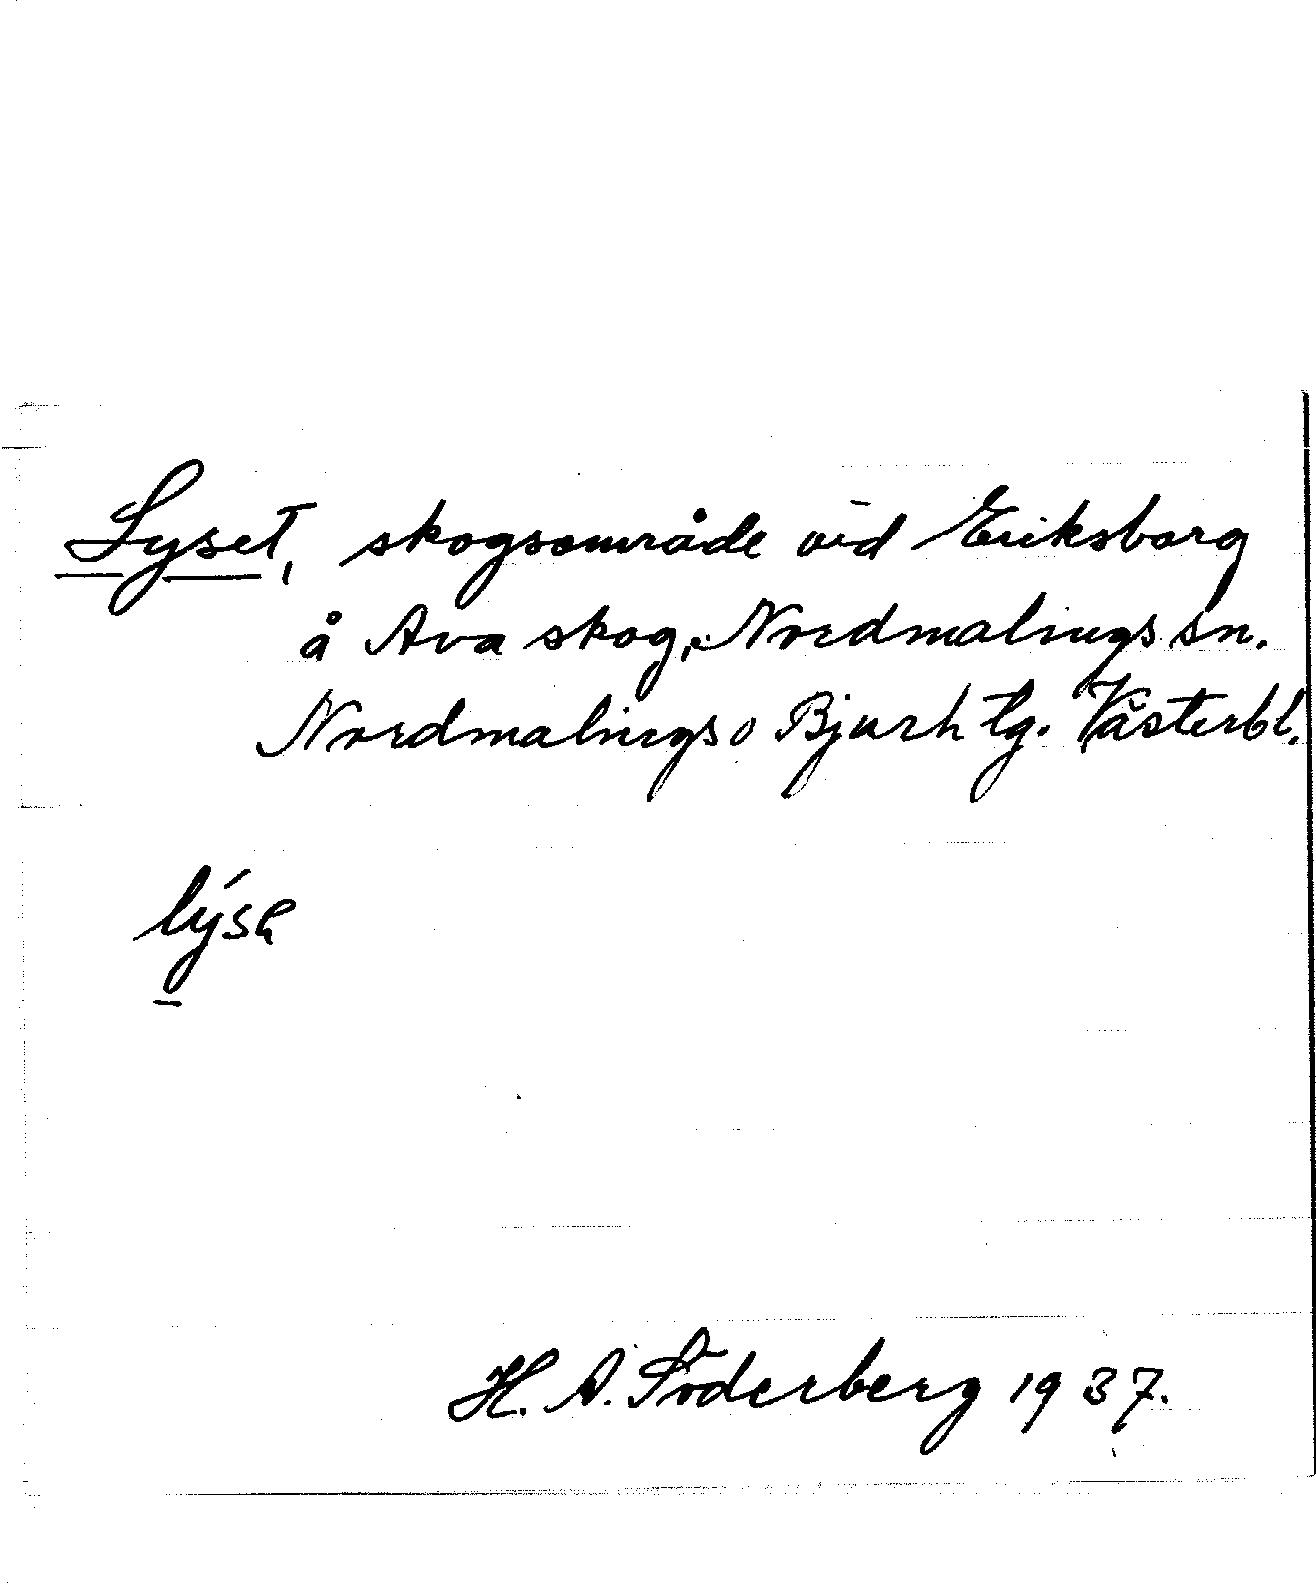 Lyset, skogsområde vid Eriksborg
å Ava skog, Nordmalings sn.
Nordmalings o Bjurh tg. Västerbl.
lýsa
H. A. Söderberg 1937.